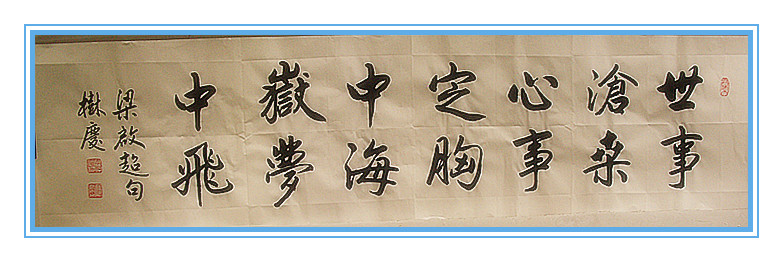 世事
滄桑
心事
定胸
中海
嶽夢
中飛
梁啟超句
樹慶